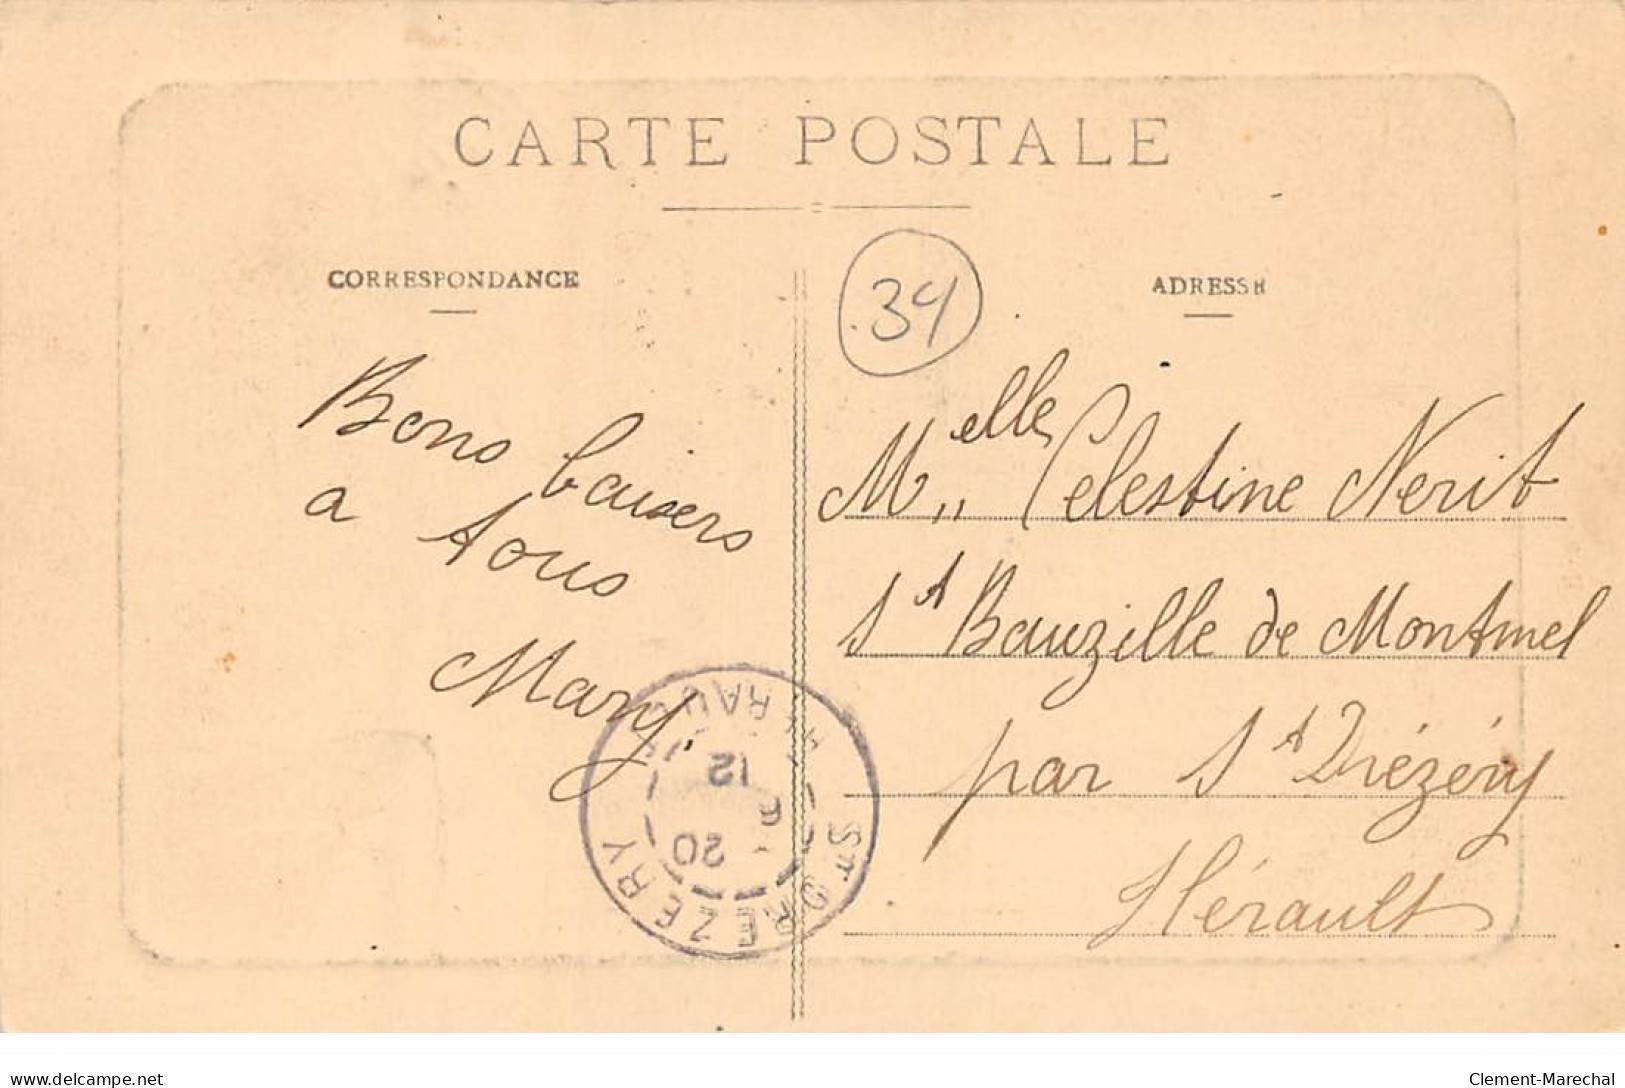 CARTE POSTALE
CORRESPONDANCE
ADRESSE
34
Bons baisers
a tous
Mary.
Melle Celestine Nerit
St Bauzille de Montmel
par St Drézéry
Hérault
ST DREZERY
HERAULT
20
12
delcampe.net
Clement-Marechal